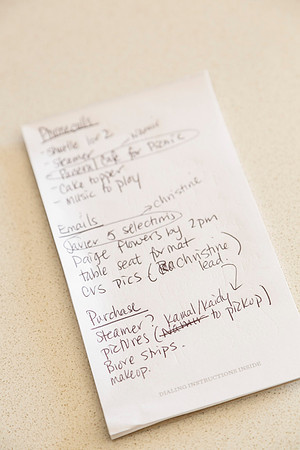 Phonecalls
- Shuttle for 2
- Steamer Namir
- Panera Cafe for Picnic
- Cake topper
- Music to play
Emails Christine
Javier 5 selections
Paige flowers by 2pm
table seat format
CVS pics ( Christine lead. )
Purchase
Steamer? Kamal/Kaidy
pictures ( to pickup )
Biore strips.
makeup.
DIALING INSTRUCTIONS INSIDE